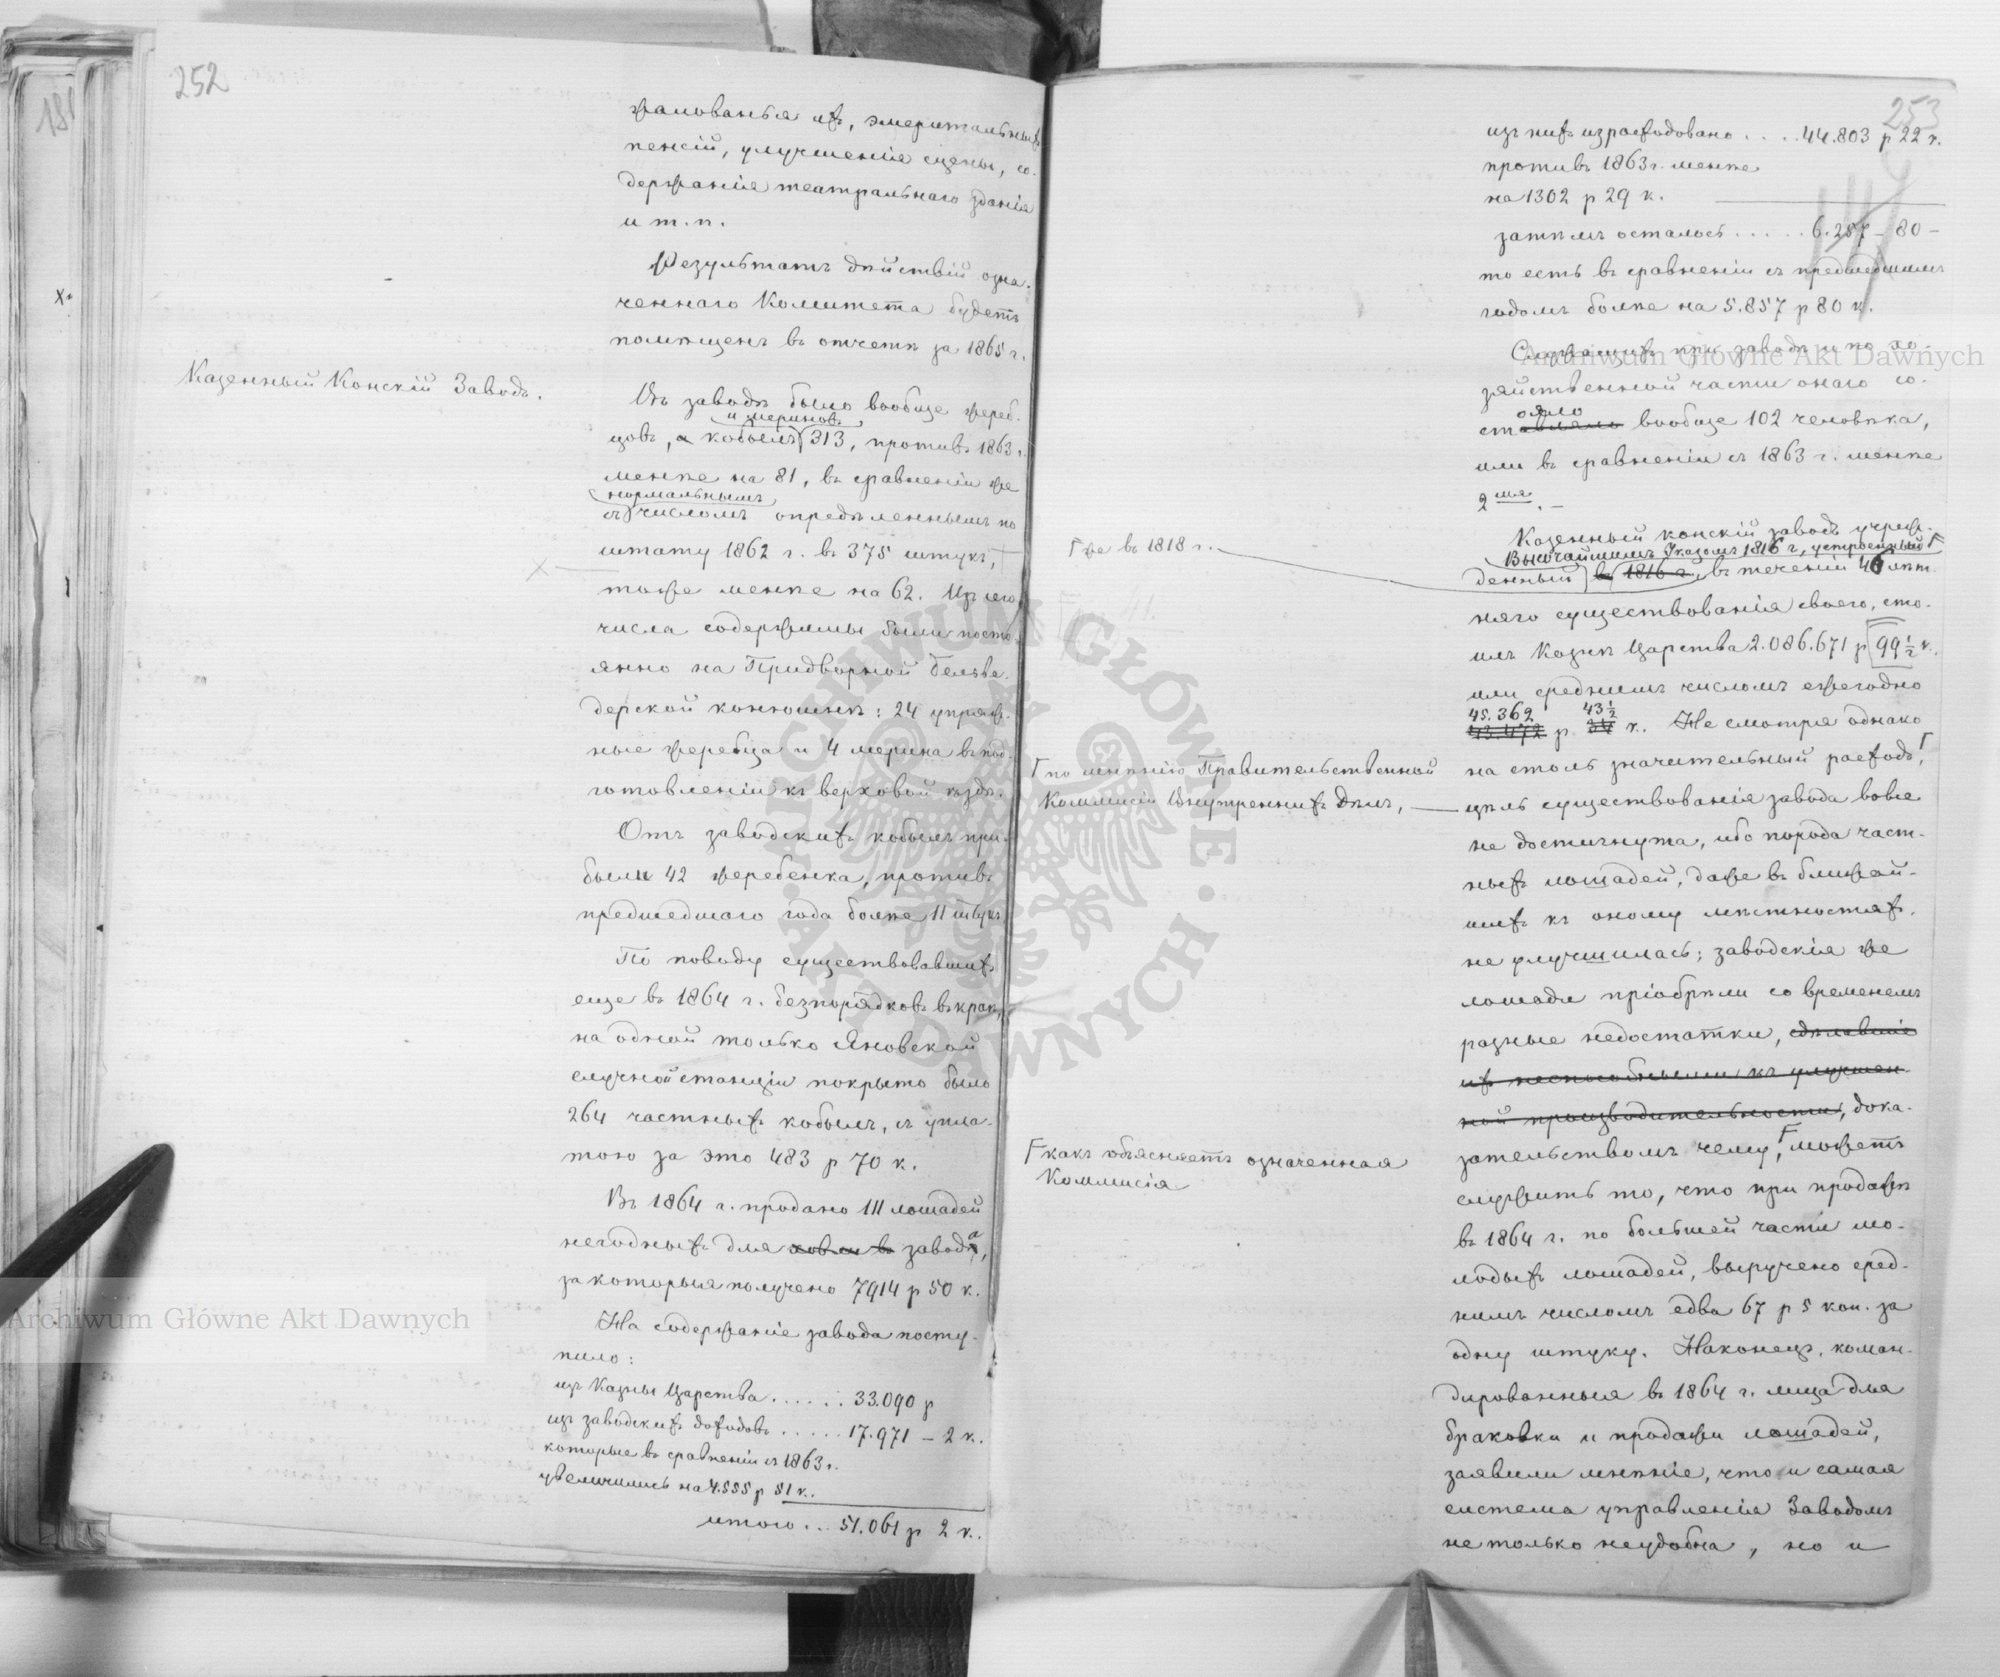 252
жалованья ихъ, эмеритальныхъ
пенсій, улучшенія сцены, со-
держанія театральнаго зданія
и т. п.
Результатъ дѣйствій озна-
ченнаго Комитета будетъ
помѣщенъ въ отчетѣ за 1865 г.
Казенный Конскій Заводъ.
Въ заводѣ было вообще жереб-
и мериновъ
цовъ, а кобылъ 313, противъ 1863 г.
менѣе на 81, въ сравненіи же
нормальнымъ
съ числомъ опредѣленнымъ по
штату 1862 г. въ 375 штукъ,
тоже менѣе на 62. Изъ сего
числа содержимы были посто-
янно на Придворной Бельве-
дерской конюшнѣ: 24 упряж-
ные жеребца и 4 мерина въ под-
готовленіи къ верховой ѣздѣ.
Отъ заводскихъ кобылъ при-
были 42 жеребенка, противъ
предшедшаго года болѣе 11 штукъ
По поводу существовавшихъ
еще въ 1864 г. безпорядковъ въ краѣ,
на одной только Яновской
случной станціи покрыто было
264 частныхъ кобылъ, съ упла-
тою за это 483 р 70 к.
Въ 1864 г. продано 111 лошадей
негодныхъ для завода,
за которыя получено 7914 р 50 к.
На содержаніе завода посту-
пило:
изъ Казны Царства . . . . . . 33.090 р
изъ заводскихъ доходовъ . . . . . 17.971 – 2 к.
которые въ сравненіи съ 1863 г.
увеличились на 4.555 р 51 к.
итого . . . 51.061 р 2 к.
253
изъ нихъ израсходовано . . . . 44.803 р 22 к.
противъ 1863 г. менѣе
на 1302 р 29 к.
затѣмъ осталось . . . . . 6.257 – 80 –
то есть въ сравненіи съ предшедшимъ
годомъ болѣе на 5.857 р 80 к.
Служащихъ при заводѣ и по хо-
зяйственной части онаго со-
ояло
ставляло вообще 102 человѣка,
или въ сравненіи съ 1863 г. менѣе
2мя. –
Казенный конскій заводъ учреж-
Высочайшимъ Указомъ 1816 г, устроенный
денный въ 1816 г, въ теченіи 46 лѣт-
же въ 1818 г.
няго существованія своего, сто-
илъ Казнѣ Царства 2.086.671 р 99 ½ к.
или среднимъ числомъ ежегодно
45.362 43 ½
43.472 р. 34 к. Не смотря однако
на столь значительный расходъ,
по мнѣнію Правительственной
Коммисіи Внутреннихъ Дѣлъ,
цѣль существованія завода вовсе
не достигнута, ибо порода част-
ныхъ лошадей, даже въ ближай-
шихъ къ оному мѣстностяхъ,
не улучшилась; заводскія же
лошади пріобрѣли со временемъ
разные недостатки, сдѣлавшіе
ихъ неспособными къ улучшен-
ной производительности, дока-
зательствомъ чему, можетъ
какъ объясняетъ означенная
Коммисія
служить то, что при продажѣ
въ 1864 г. по большей части мо-
лодыхъ лошадей, выручено сред-
нимъ числомъ едва 67 р 5 коп. за
одну штуку. Наконецъ, коман-
дированныя въ 1864 г. лица для
браковки и продажи лошадей,
заявили мнѣніе, что и самая
система управленія Заводомъ
не только неудобна, но и
Archiwum Główne Akt Dawnych
Archiwum Główne Akt Dawnych
ARCHIWUM GŁÓWNE · AKT DAWNYCH ·